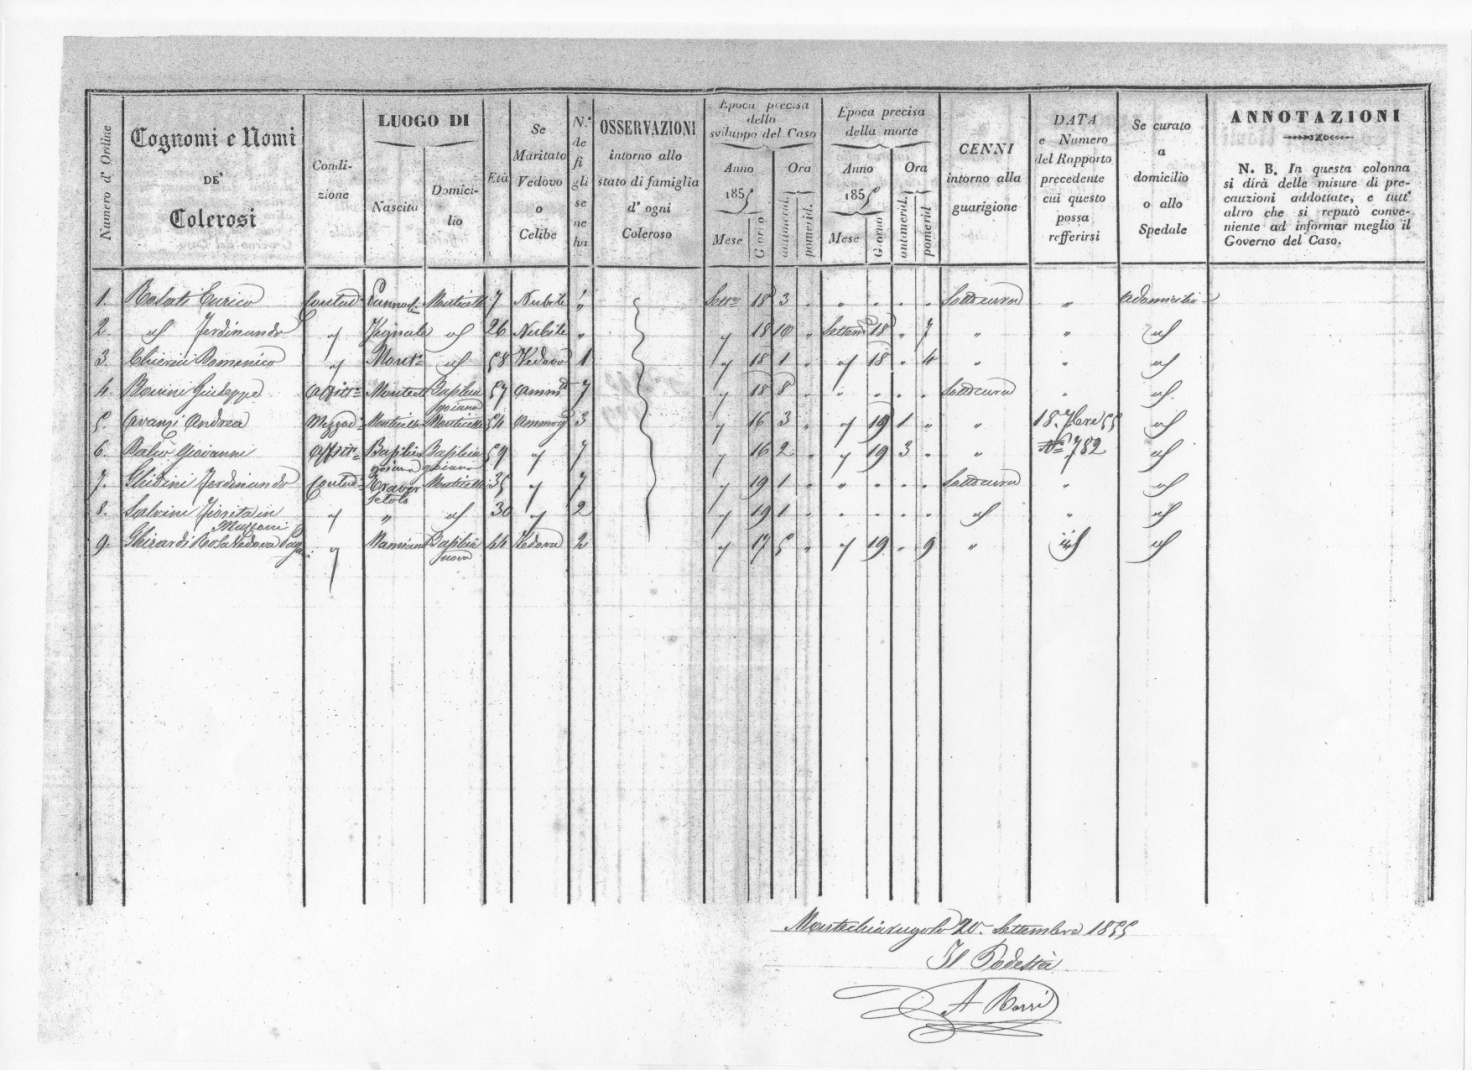 Numero d'Ordine
Cognomi e Nomi
DE'
Colerosi
Condi-
zione
LUOGO DI
Nascita
Domici-
lio
Età
Se
Maritato
Vedovo
o
Celibe
N.°
de
fi
gli
se
ne
ha
OSSERVAZIONI
intorno allo
stato di famiglia
d' ogni
Coleroso
Epoca precisa
dello
sviluppo del Caso
Anno
1855
Mese
Giorno
Ora
antimerid.
pomerid.
Epoca precisa
della morte
Anno
1855
Mese
Giorno
Ora
antimerid.
pomerid.
CENNI
intorno alla
guarigione
DATA
e Numero
del Rapporto
precedente
cui questo
possa
refferirsi
Se curato
a
domicilio
o allo
Spedale
ANNOTAZIONI
N. B. In questa colonna
si dirà delle misure di pre-
cauzioni addottate, e tutt'
altro che si reputò conve-
niente ad informar meglio il
Governo del Caso.
1. Enrico Contad. Monticelli 7 Nubile " Sett.e 18 3 " " " " " Sottocura " a domicilio
2. id Ferdinando " id 26 Nubile " " 18 10 " Settem 18 " 7 " " id
3. Chierici Domenico " id 58 Vedovo 1 " 18 1 " " 18 " 4 " " id
4. Giuseppe Basilica 57 7 " 18 8 " " " " " Sottocura " id
goiano
5. Avanzi Andrea Mezzad. Monticelli Monticelli 54 3 " 16 3 " " 19 1 " " 18. 7bre 55 id
6. Giovanni Basilica Basilica 59 " 7 " 16 2 " " 19 3 " " N.° 782 id
goiano goiano
7. Ghidini Ferdinando Contad. Traver Monticelli 35 " 7 " 19 1 " " " " " Sottocura " id
setolo
8. Salvini Fiorita in " " id 30 " 2 " 19 1 " " " " " id " id
Mazzoni
9. Ghirardi Rosa Vedova " Mamiano Basilica 44 Vedova 2 " 17 5 " " 19 " 9 " id id
nova
Montechiarugolo 20. Settembre 1855
Il Podestà